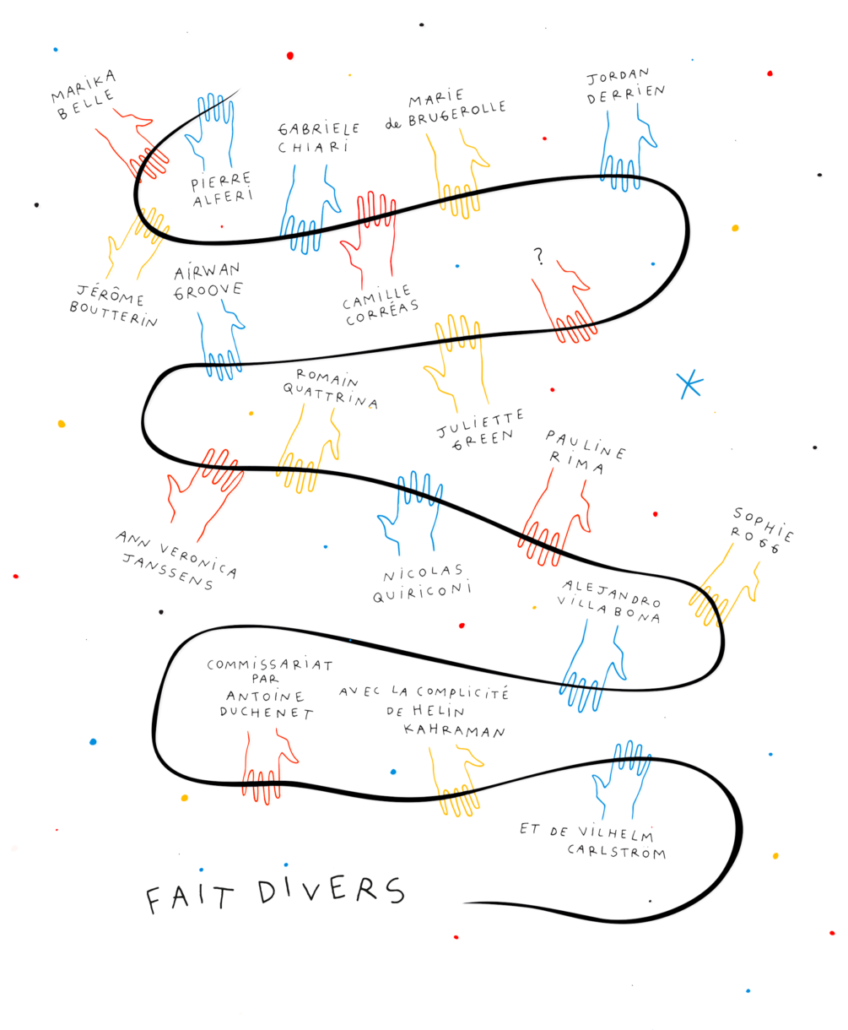 MARIKA
BELLE
PIERRE
ALFERI
GABRIELE
CHIARI
MARIE
de BRUGEROLLE
JORDAN
DERRIEN
JÉRÔME
BOUTTERIN
AIRWAN
GROOVE
CAMILLE
CORRÉAS
?
ROMAIN
QUATTRINA
JULIETTE
GREEN
PAULINE
RIMA
ANN VERONICA
JANSSENS
NICOLAS
QUIRICONI
SOPHIE
ROGG
ALEJANDRO
VILLABONA
COMMISSARIAT
PAR
ANTOINE
DUCHENET
AVEC LA COMPLICITÉ
DE HELIN
KAHRAMAN
ET DE VILHELM
CARLSTRÖM
FAIT DIVERS